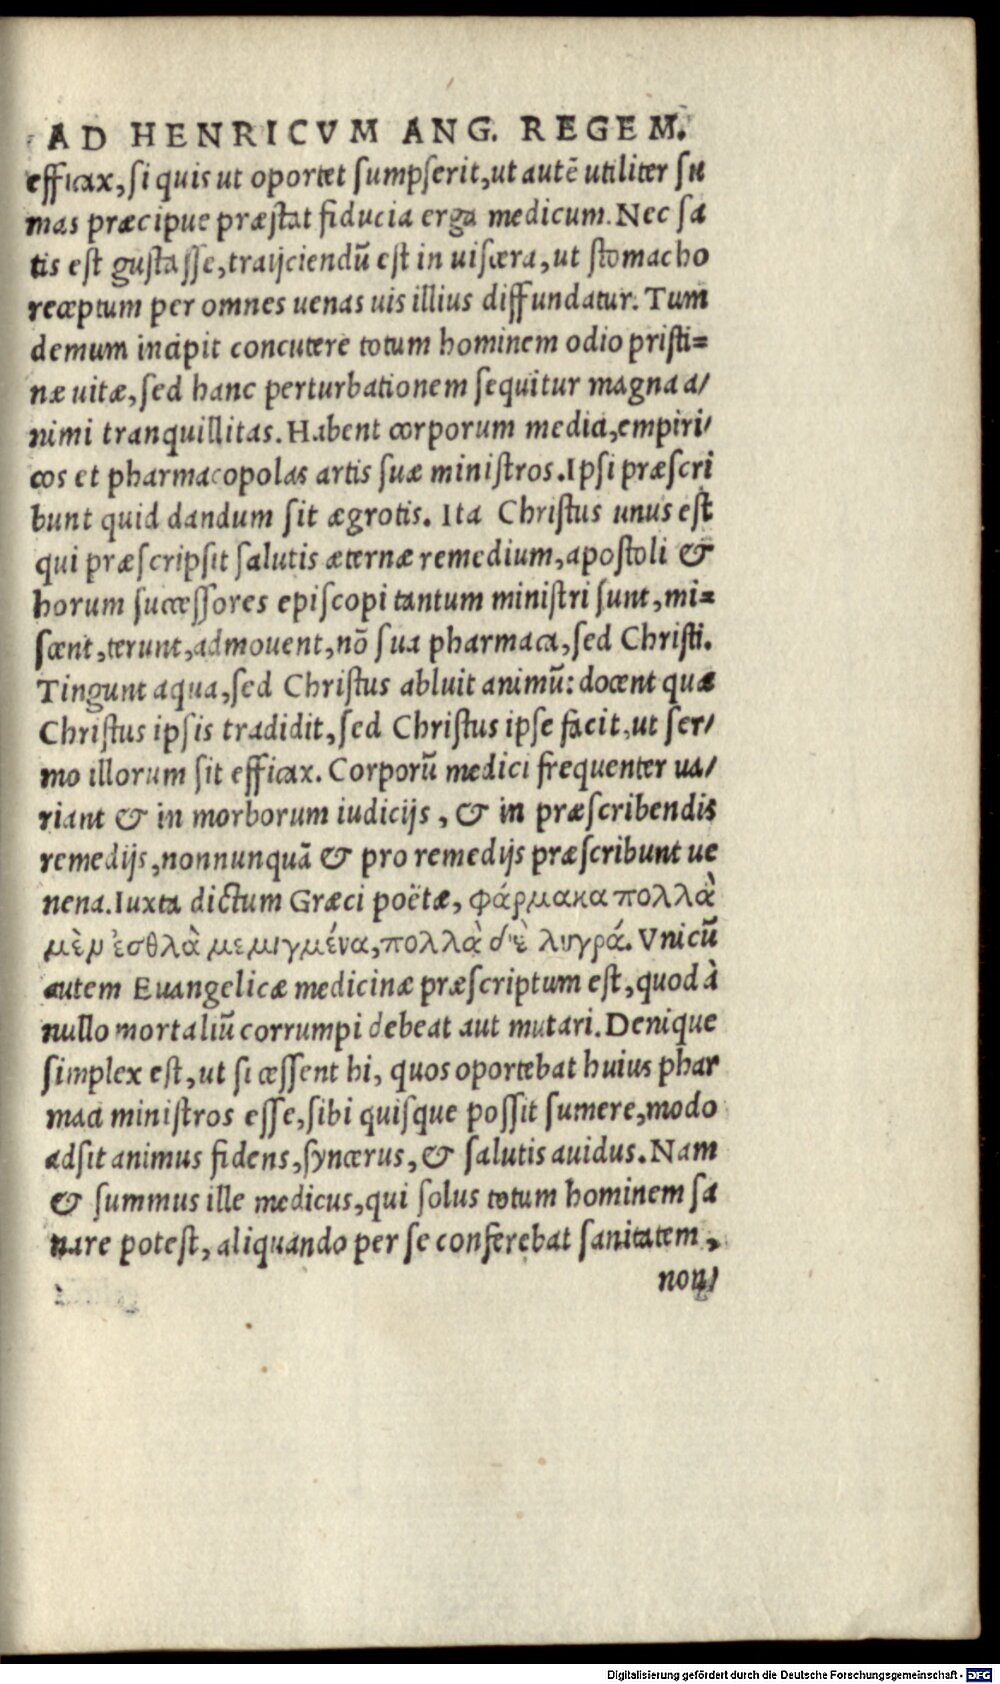 AD HENRICVM ANG. REGEM.
efficax, si quis ut oportet sumpserit, ut autē utiliter su
mas præcipue præstat fiducia erga medicum. Nec sa
tis est gustasse, traijciendū est in uiscera, ut stomacho
receptum per omnes uenas uis illius diffundatur. Tum
demum incipit concutere totum hominem odio pristi=
næ uitæ, sed hanc perturbationem sequitur magna a/
nimi tranquillitas. Habent corporum medici, empiri/
cos et pharmacopolas artis suæ ministros. Ipsi præscri
bunt quid dandum sit ægrotis. Ita Christus unus est
qui præscripsit salutis æternæ remedium, apostoli &
horum successores episcopi tantum ministri sunt, mi=
scent, terunt, admouent, nō sua pharmaca, sed Christi.
Tingunt aqua, sed Christus abluit animū: docent quæ
Christus ipsis tradidit, sed Christus ipse facit, ut ser/
mo illorum sit efficax. Corporū medici frequenter ua/
riant & in morborum iudicijs, & in præscribendis
remedijs, nonnunquā & pro remedijs præscribunt ue
nena. Iuxta dictum Græci poëtæ, φάρμακα πολλὰ
μὲν ἐσθλὰ μεμιγμένα, πολλὰ δ'ὲ λυγρά. Vnicū
autem Euangelicæ medicinæ præscriptum est, quod à
nullo mortaliū corrumpi debeat aut mutari. Denique
simplex est, ut si cessent hi, quos oportebat huius phar
maci ministros esse, sibi quisque possit sumere, modo
adsit animus fidens, syncerus, & salutis auidus. Nam
& summus ille medicus, qui solus totum hominem sa
nare potest, aliquando per se conferebat sanitatem,
non/
Digitalisierung gefördert durch die Deutsche Forschungsgemeinschaft - DFG